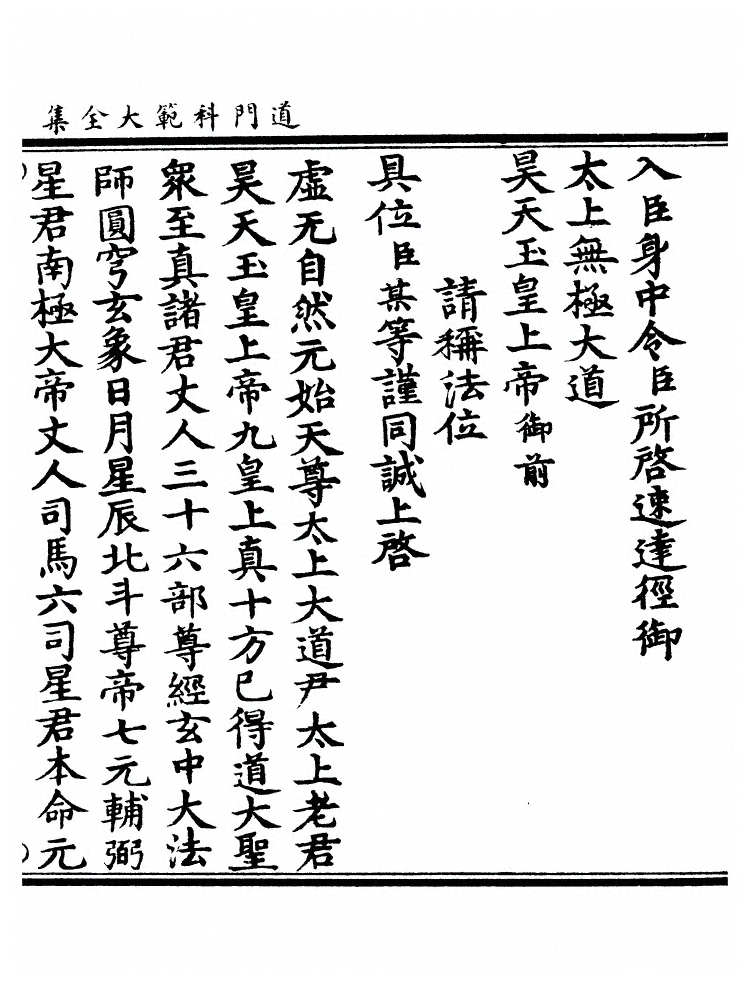 道門科範大全集
入臣身中令臣所啓速達徑御
太上無極大道
昊天玉皇上帝御前
請稱法位
具位臣某等謹同誠上啓
虛无自然元始天尊太上大道尹太上老君
昊天玉皇上帝九皇上真十方已得道大聖
衆至真諸君丈人三十六部尊經玄中大法
師圓穹玄象日月星辰北斗尊帝七元輔弼
星君南極大帝丈人司馬六司星君本命元